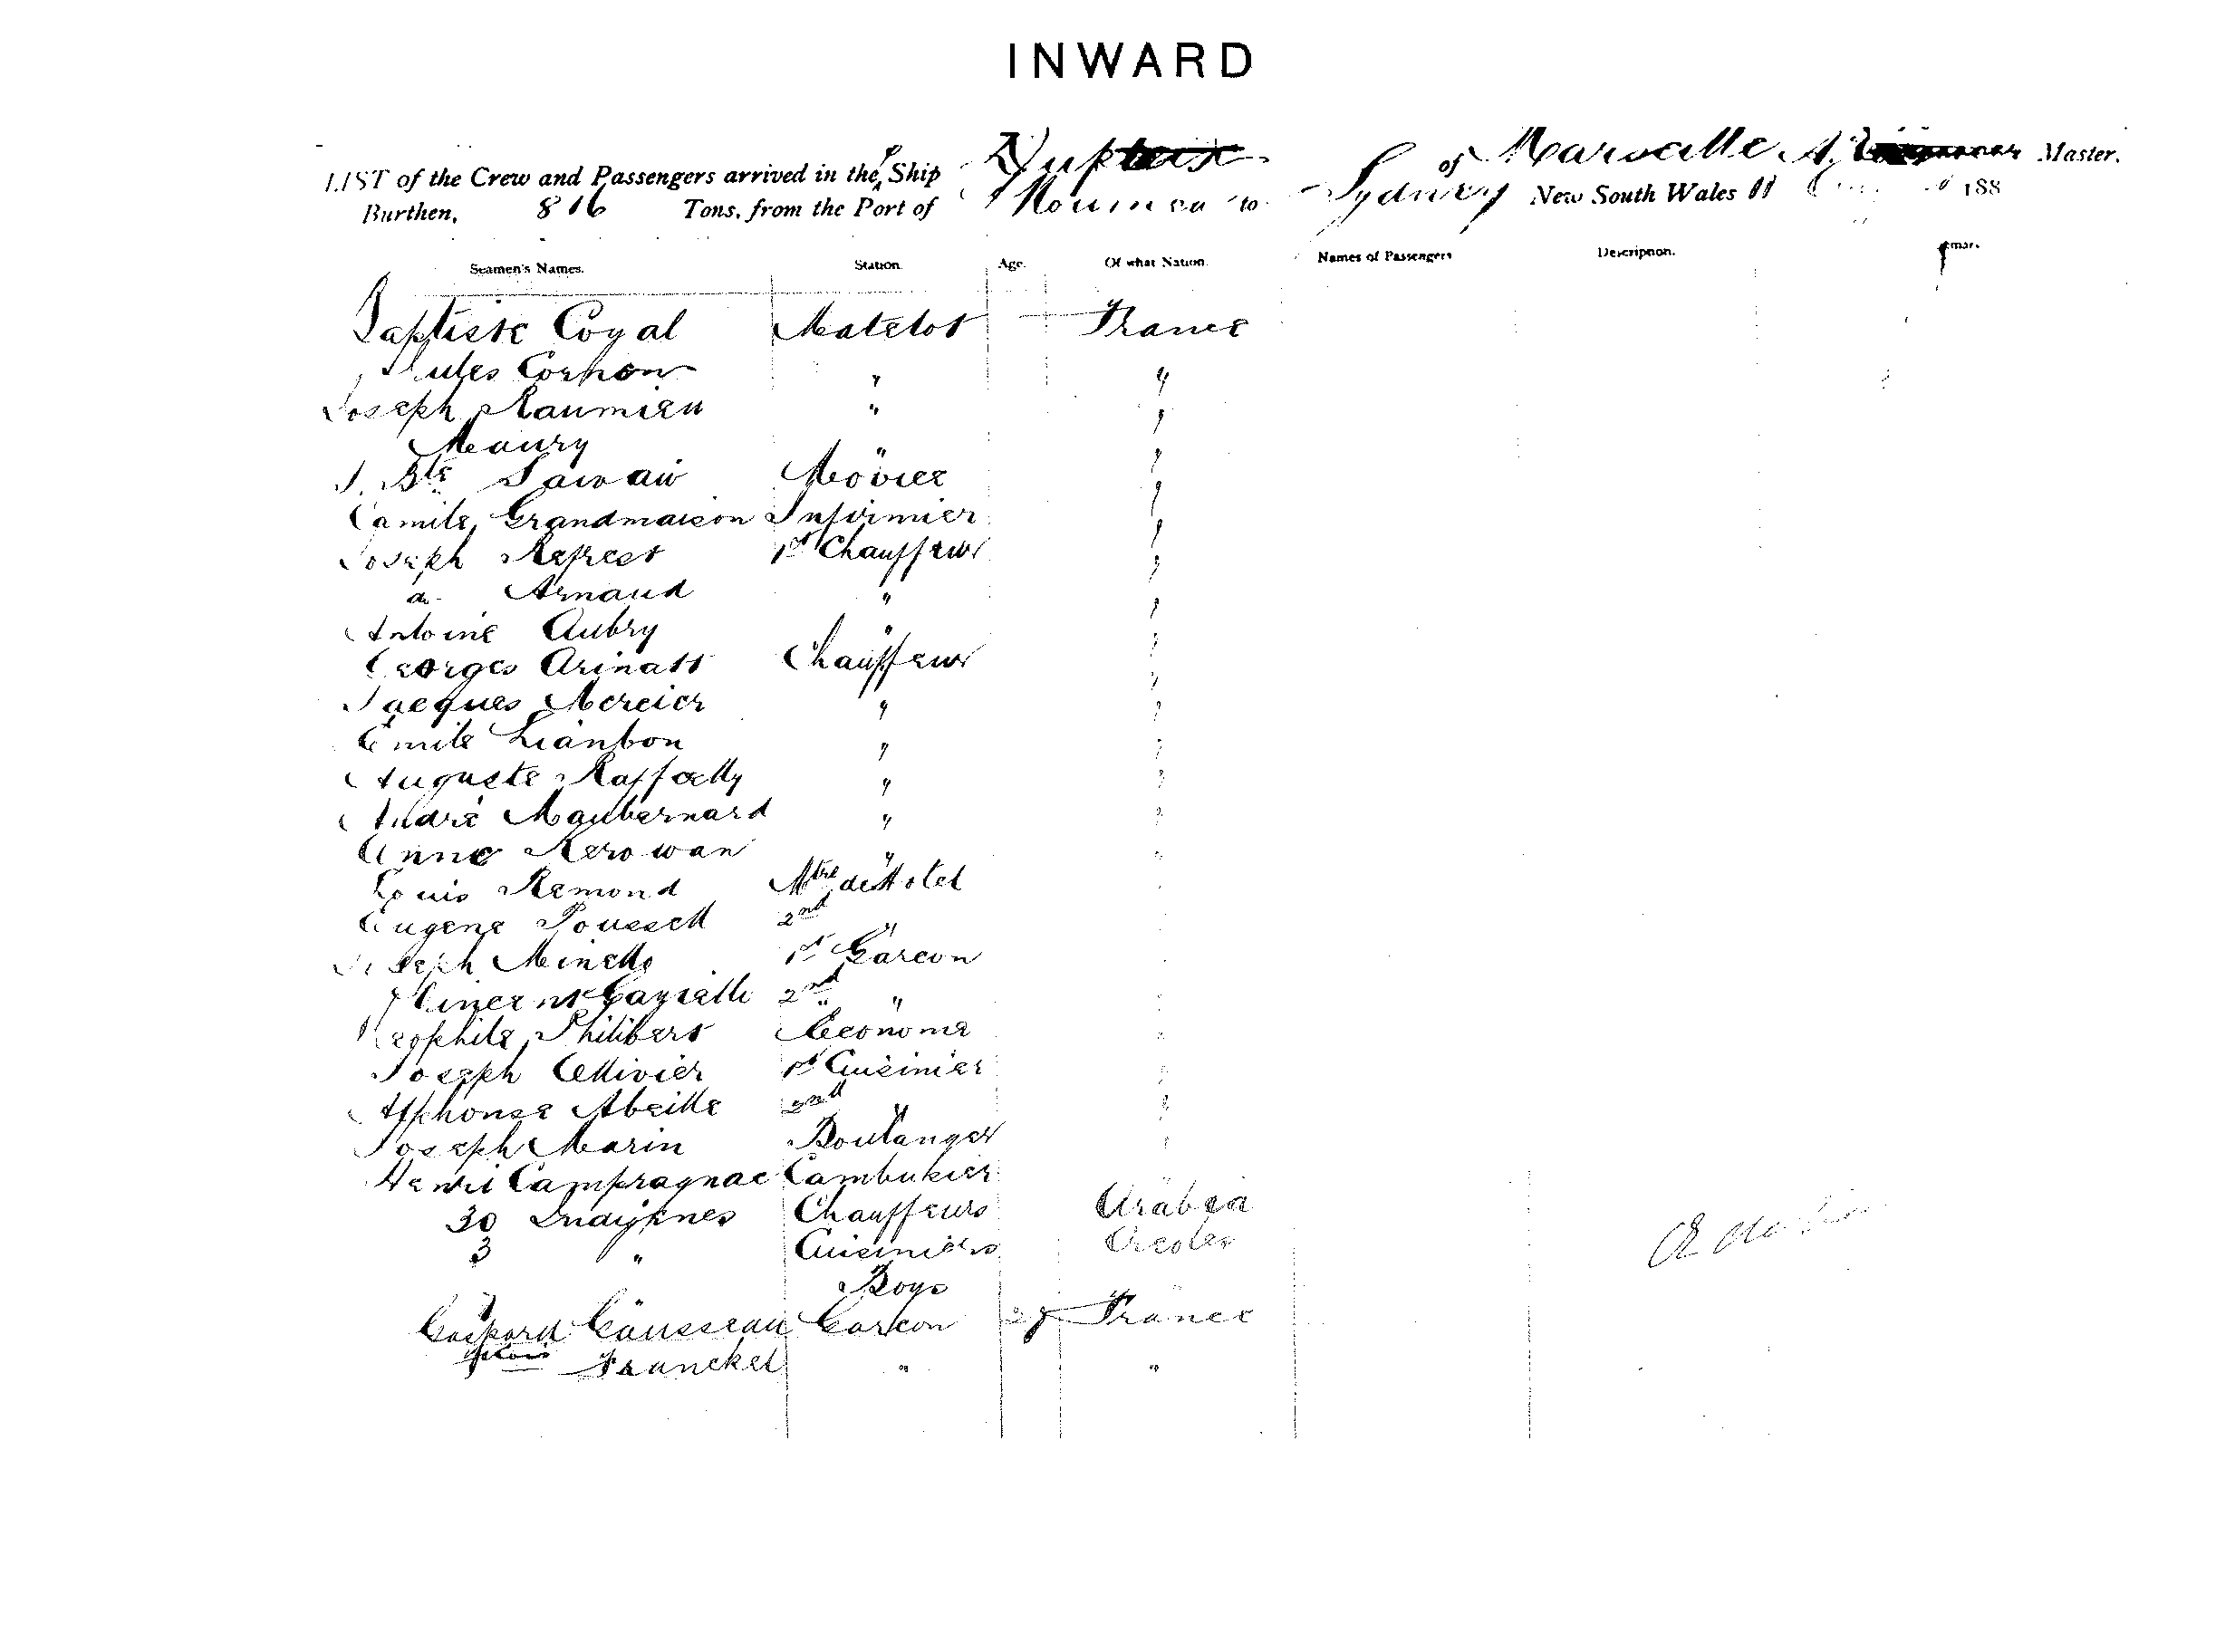 INWARD
LIST of the Crew and Passengers arrived in the Ship of Marseille A. Master.
Burthen, 816 Tons, from the Port of Noumea to Sydney New South Wales 11 188
Seamen's Names. Station. Age. Of what Nation. Names of Passengers Description.
Baptiste Coyal Matelot France
Jules Corhon " "
Joseph Raumieu " "
Maury " "
J. Bte "
Camile Grandmaison Infirmier "
Joseph 1st Chauffeur "
do Arnaud " "
Antoine Aubry " "
Georges Chauffeur "
Jacques Mercier " "
Emile " "
Auguste Raffaelly " "
André Maubernard " "
Kerowan " "
Louis Remond Mtre de Hotel
Eugene 2nd "
Joseph 1st Garcon
2nd "
Theophile Philibert Econome
Joseph Ollivier 1st Cuisinier
Alphonse Abeille 2nd " "
Joseph Marin Boulanger
Henri Campragnac Cambusier
30 Indigenes Chauffeurs Arabia
3 " Cuisiniers
Boys
Gaspard Causseau Garcon France
Franckel " "